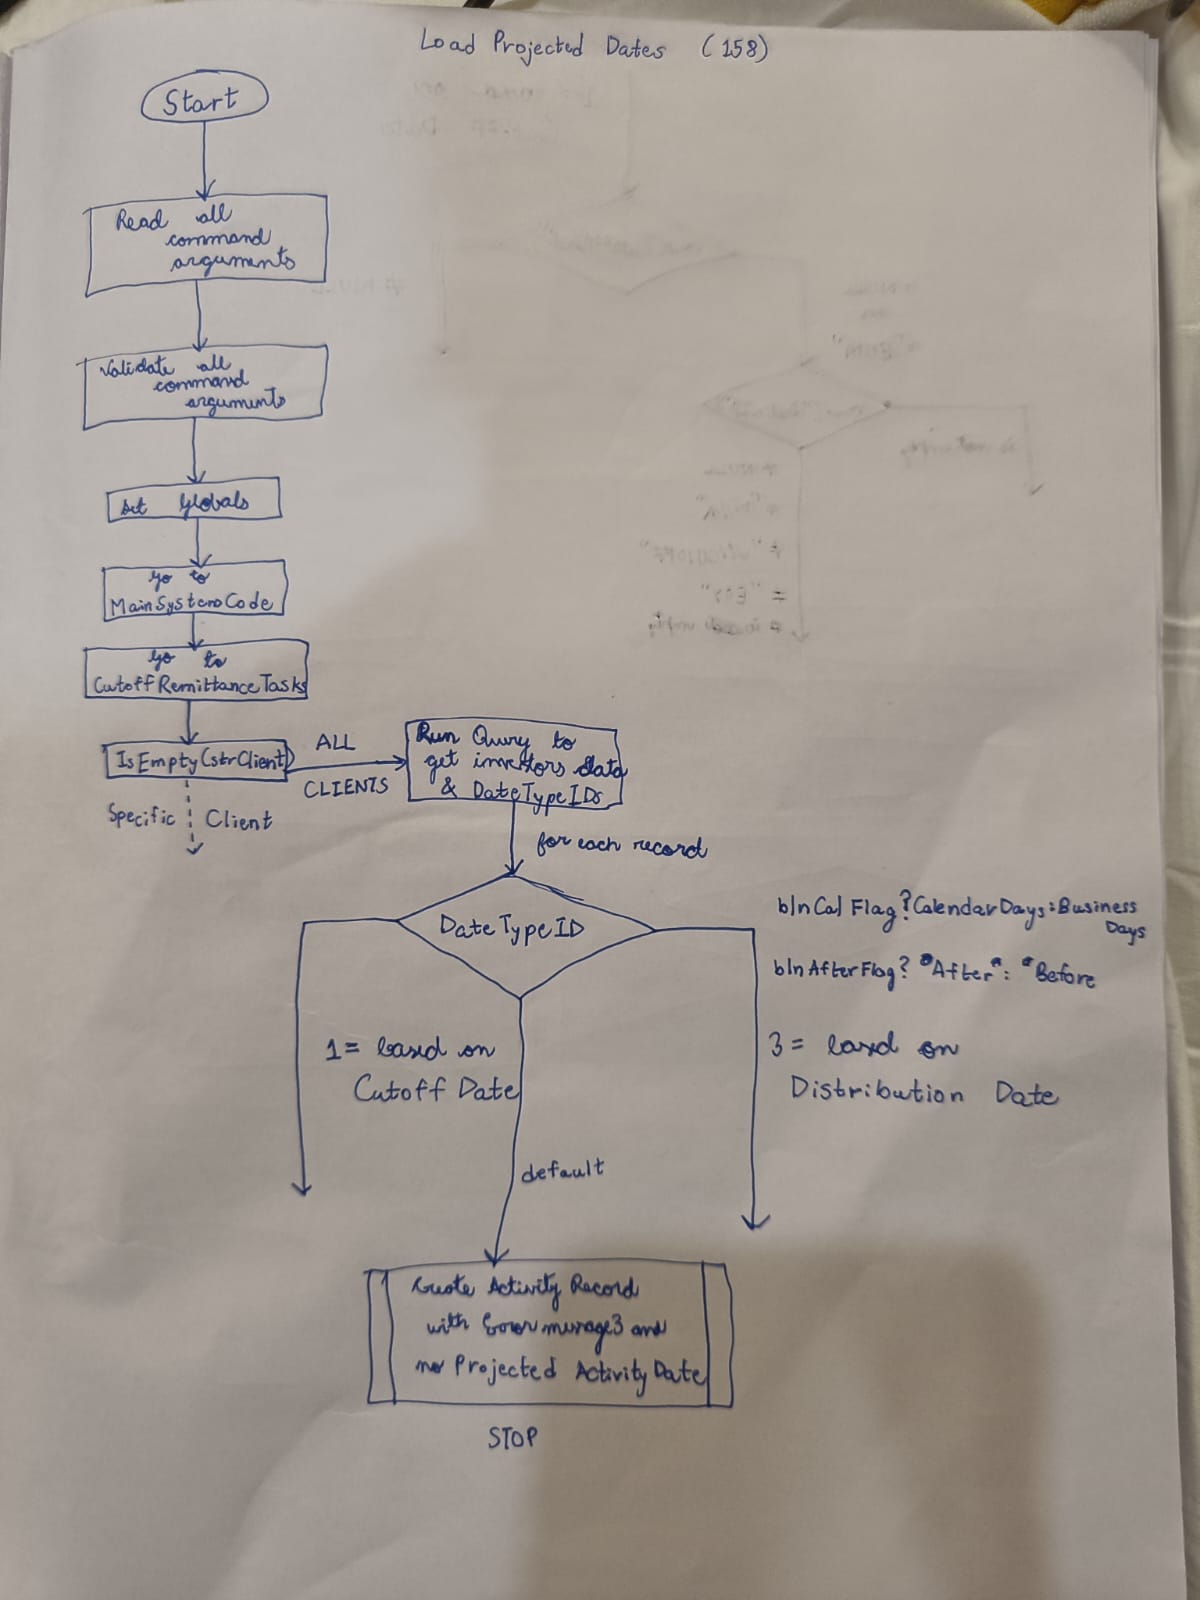 Load Projected Dates (158)
Start
Read all
command
arguments
Validate all
command
arguments
Set Globals
Go to
MainSystemCode
Go to
CutoffRemittanceTasks
IsEmpty(strClient)
ALL
CLIENTS
Specific Client
Run Query to
get investors data
& DateTypeIDs
for each record
DateTypeID
blnCalFlag?CalendarDays:Business
Days
blnAfterFlag? "After": "Before
1= based on
Cutoff Date
3= based on
Distribution Date
default
Create Activity Record
with Error message3 and
no Projected Activity Date
STOP